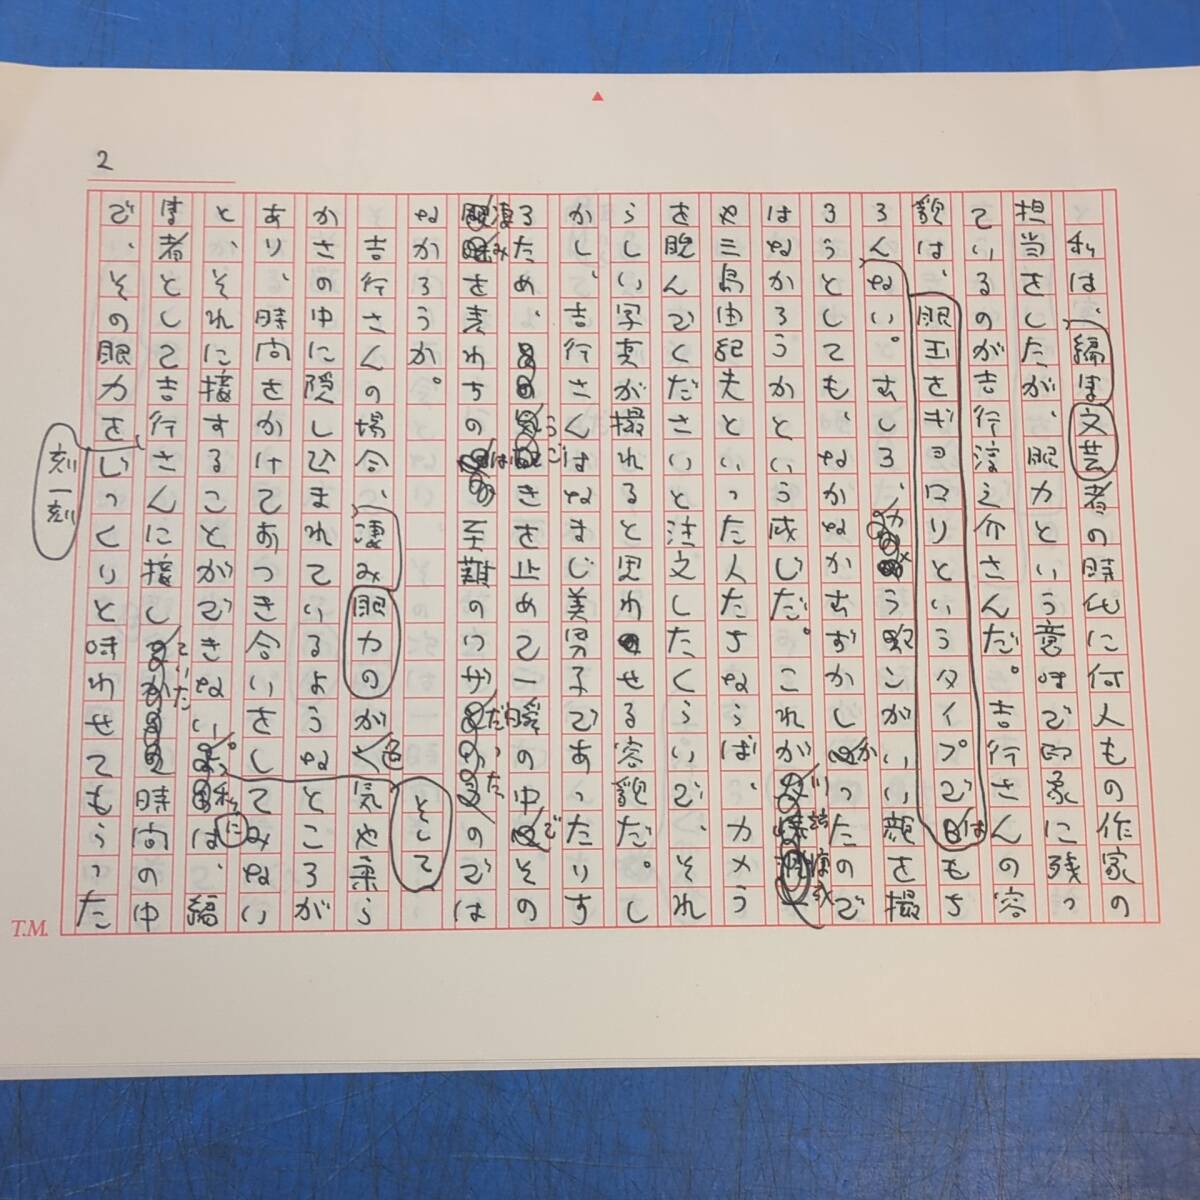 2
私は、文芸編集者の時代に何人もの作家の
担当をしたが、眼力という意味で印象に残っ
ているのが吉行淳之介さんだ。吉行さんの容
貌は、眼玉をギョロリというタイプではもち
ろんない。むしろ、
がいい顔を撮
ろうとしても、なかなかむずかしかったので
はなかろうかという感じだ。これが川端康成
や三島由紀夫といった人たちならば、カメラ
を睨んでくださいと注文したくらいで、それ
らしい写真が撮れると思わせる容貌だ。し
かし、吉行さんはなまじ美男子であったりす
るため、うごきを止めて一瞬の中でその
凄みを表わすのは至難のワザだったのでは
なかろうか。
吉行さんの場合、眼力の凄みが色気や柔ら
かさの中に隠しひまれているようなところが
あり、時間をかけてあつき合いさしてみない
と、それに接することができない。私には、編
集者として吉行さんに接していた時間の中
で、その眼力を刻一刻じっくりと味わせてもらった
として
T.M.